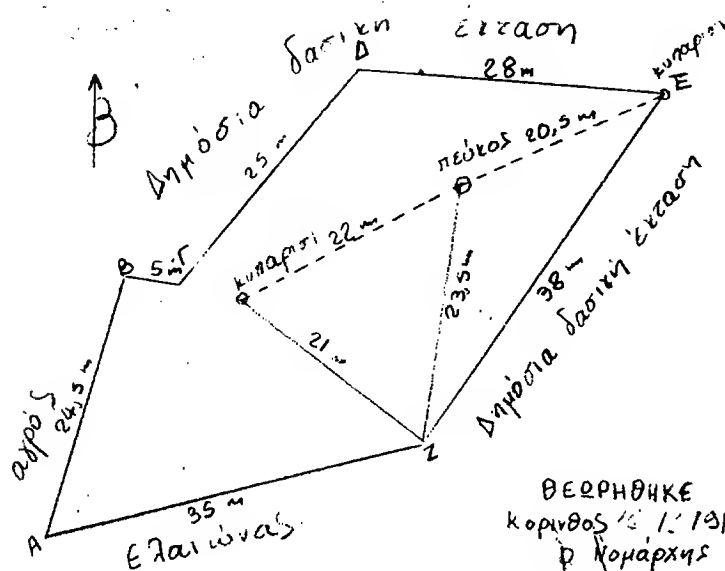 Δημόσια δασική έκταση
Δ
28 m
κυπαρίσι
Ε
Β
25 m
πεύκος 20,5 m
Β
5 m
Γ
κυπαρίσι 22 m
23,5 m
38 m
Δημόσια δασική έκταση
21 m
αγρός
24,5 m
Ζ
35 m
Α
Ελαιώνας
ΘΕΩΡΗΘΗΚΕ
Κορινθος
Νομάρχης